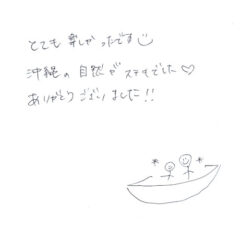 とても楽しかったです
沖縄の自然がステキでした♡
ありがとうございました!!